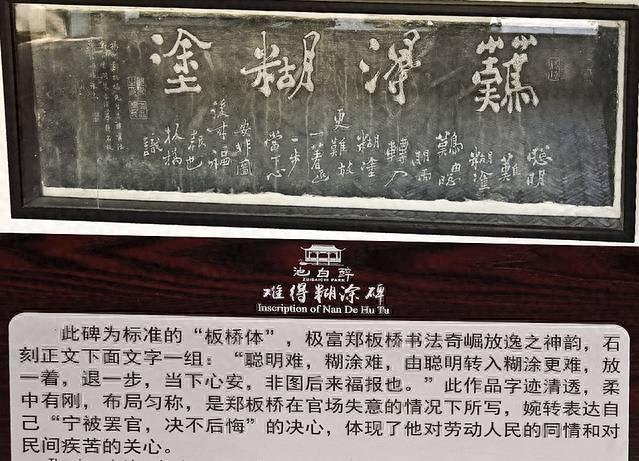 難得糊塗
聰明
難
糊塗
難由聰
明而
轉入
糊塗
更難放
一着退
一步
當下心
安非圖
後來福
報也
板橋
識
醉白池
ZUIBAICHI PARK
难得糊涂碑
Inscription of Nan De Hu Tu
此碑为标准的“板桥体”，极富郑板桥书法奇崛放逸之神韵，石
刻正文下面文字一组：“聪明难，糊涂难，由聪明转入糊涂更难，放
一着，退一步，当下心安，非图后来福报也。”此作品字迹清透，柔
中有刚，布局匀称，是郑板桥在官场失意的情况下所写，婉转表达自
己“宁被罢官，决不后悔”的决心，体现了他对劳动人民的同情和对
民间疾苦的关心。